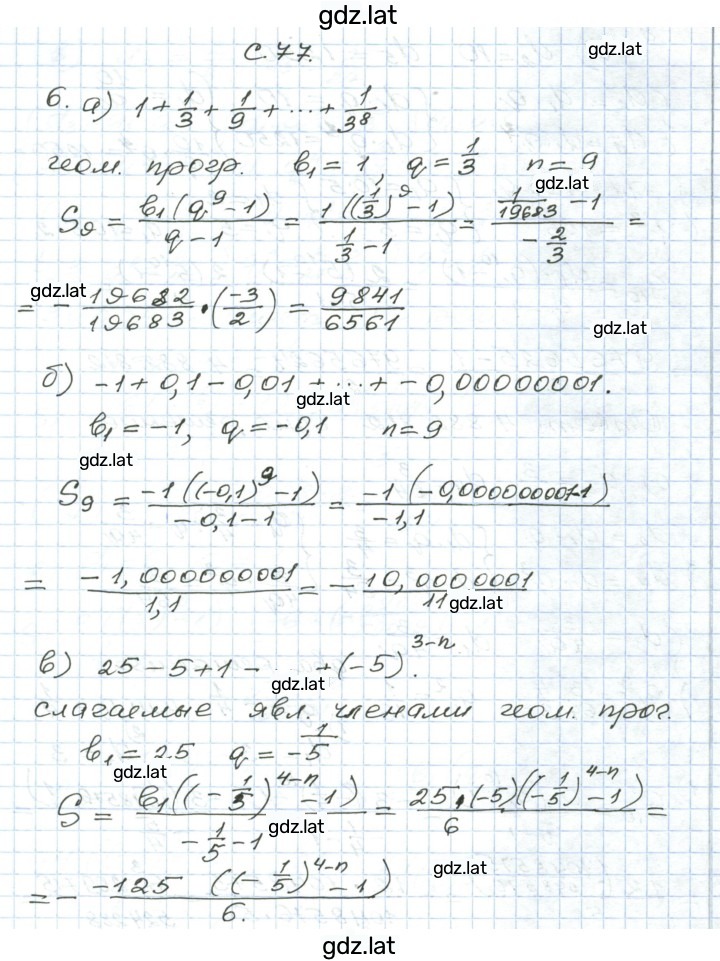 gdz.lat
с. 77. gdz.lat
6. а) 1 + 1/3 + 1/9 + ... + 1/3⁸
геом. прогр. b₁ = 1, q = 1/3 n = 9
gdz.lat
S₉ = b₁(q⁹ - 1)/(q - 1) = 1((1/3)⁹ - 1)/(1/3 - 1) = (1/19683 - 1)/(-2/3) =
gdz.lat
= - 19682/19683 · (-3/2) = 9841/6561
gdz.lat
б) -1 + 0,1 - 0,01 + ... + - 0,00000001.
gdz.lat
b₁ = -1, q = -0,1 n = 9
gdz.lat
S₉ = -1((-0,1)⁹ - 1)/(-0,1 - 1) = -1(-0,000000001-1)/(-1,1)
= -1,000000001/1,1 = - 10,00000001/11
gdz.lat
в) 25 - 5 + 1 - ... + (-5)³⁻ⁿ.
gdz.lat
слагаемые явл. членами геом. прог.
b₁ = 25 q = -1/5
gdz.lat
S = b₁((-1/5)⁴⁻ⁿ - 1)/(-1/5 - 1) = 25·(-5)((-1/5)⁴⁻ⁿ - 1)/6 =
gdz.lat
gdz.lat
= - -125 ((-1/5)⁴⁻ⁿ - 1)/6.
gdz.lat